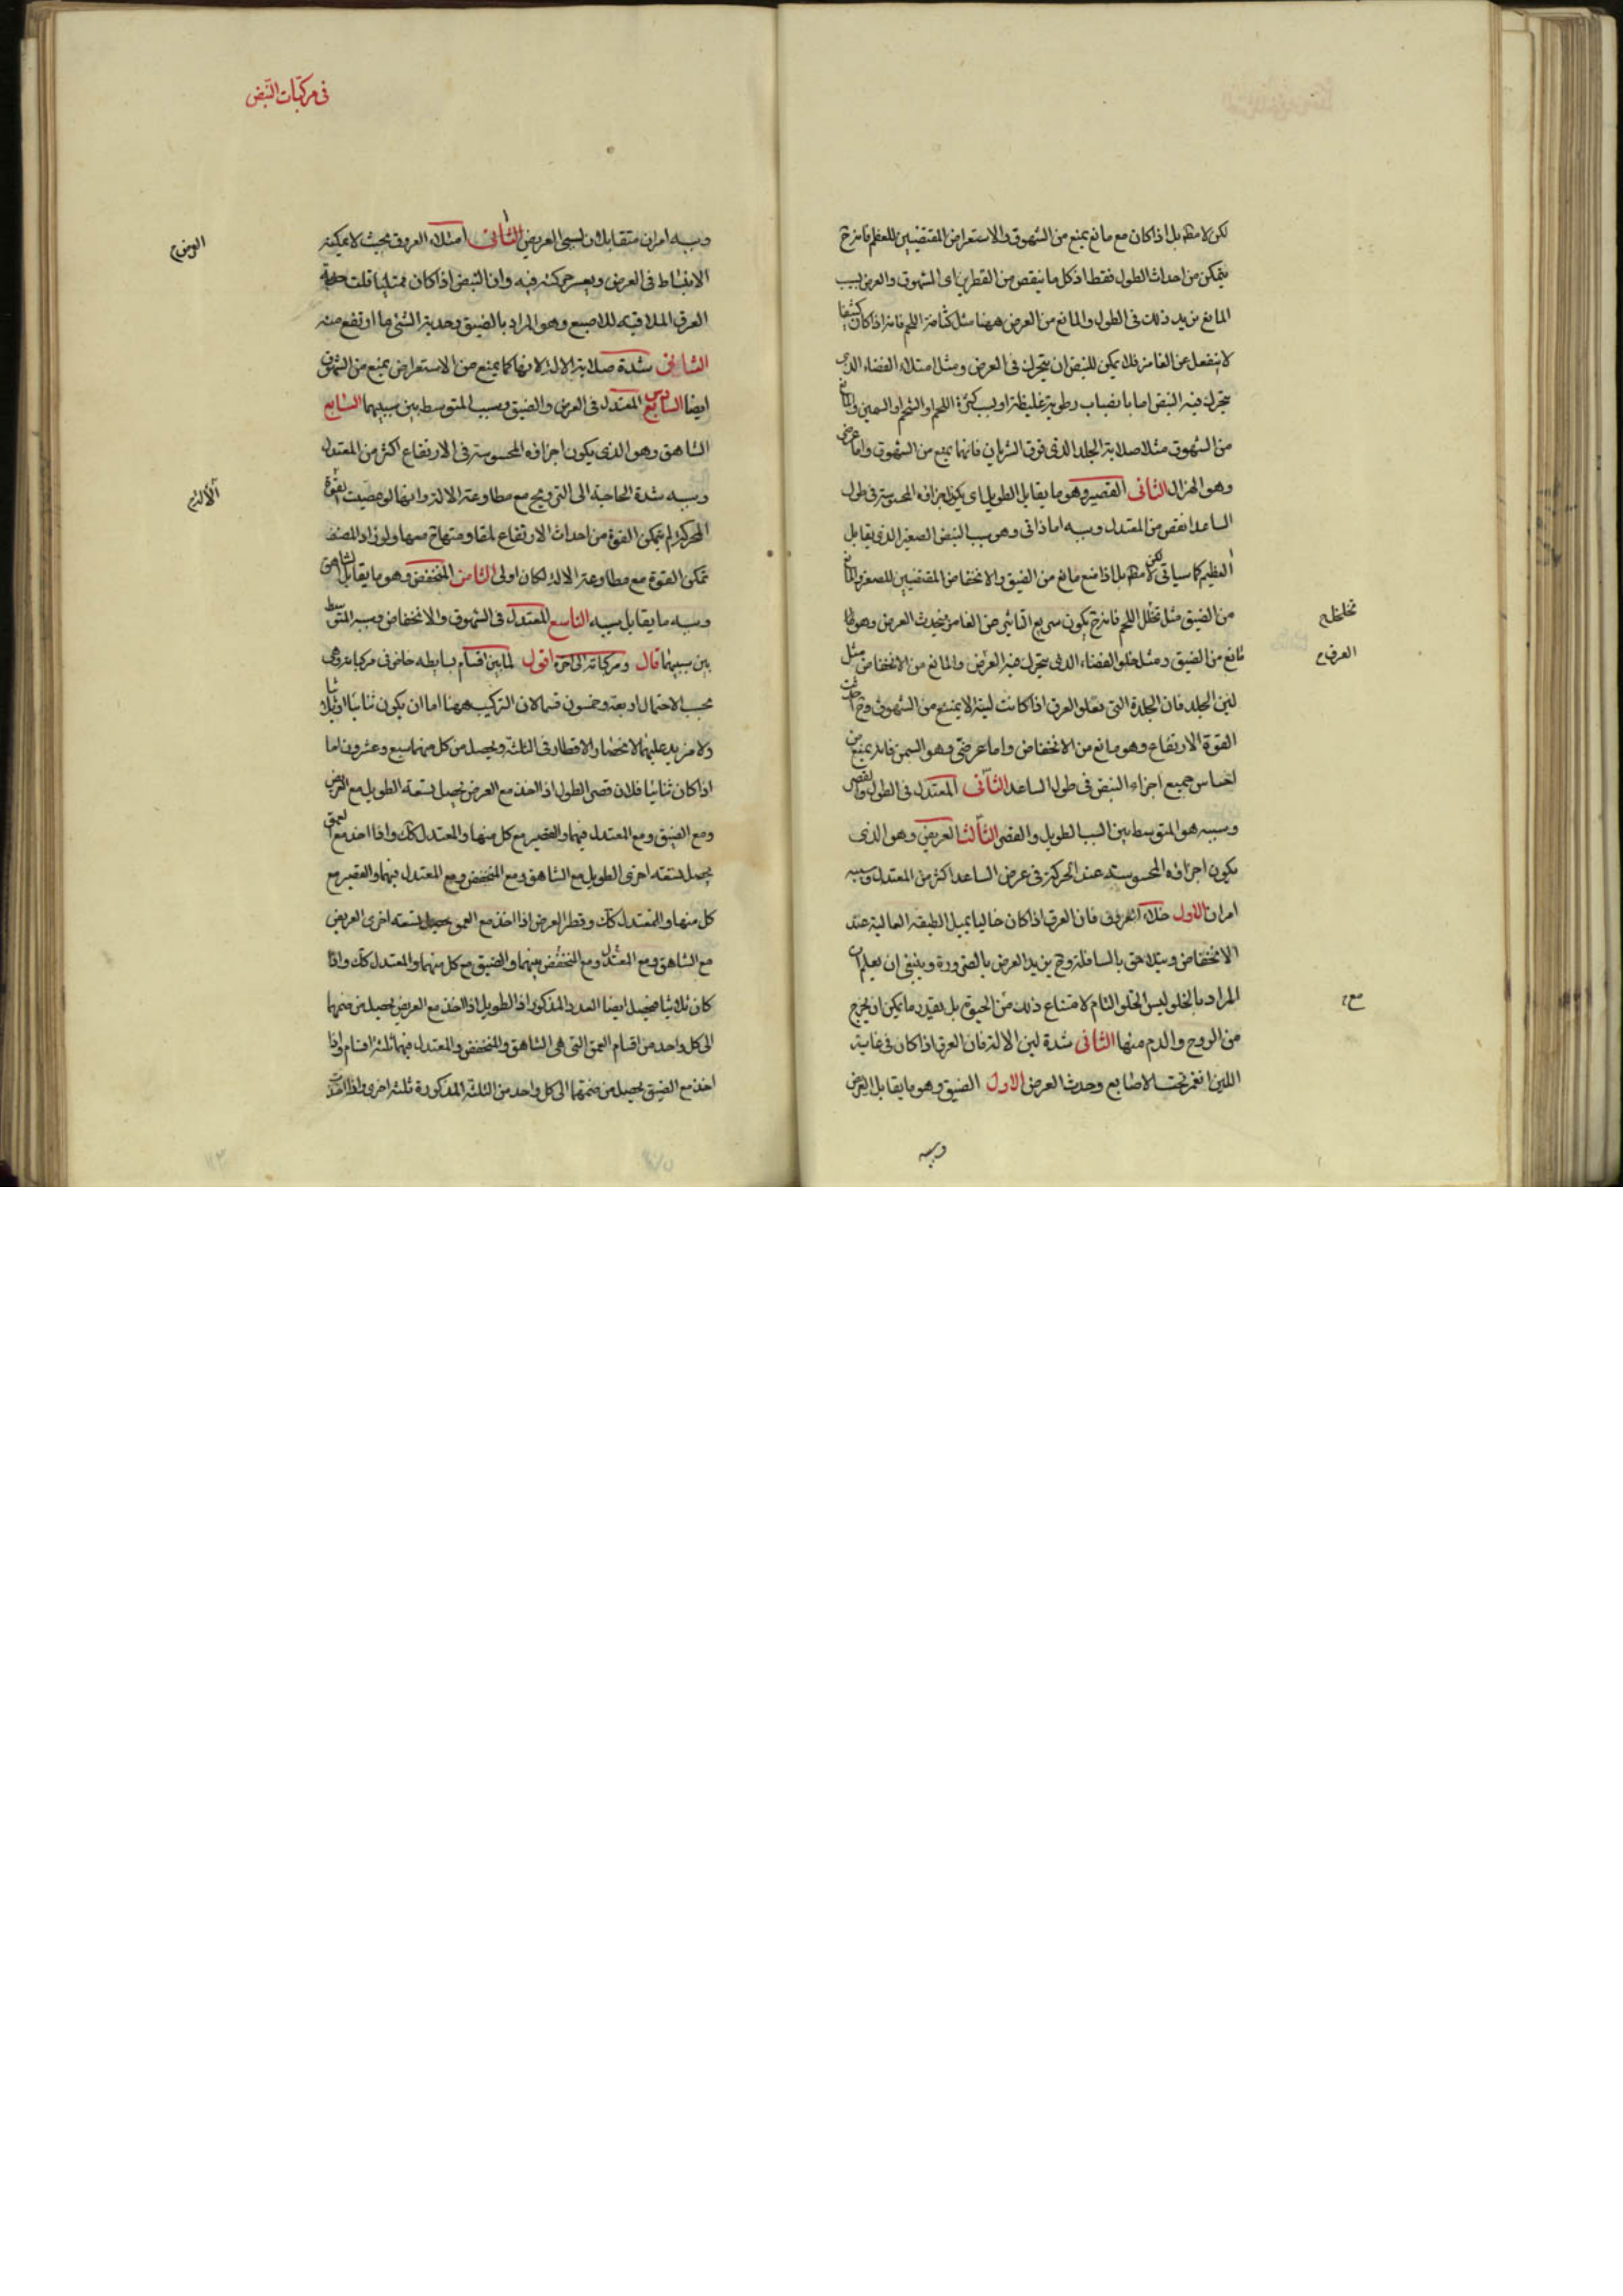 لكن لا مطلقا بل اذا كان مع مانع يمنع من الشهوق والاستعراض المقتضيين للعظم فانه ح
يتمكن من احداث الطول فقط اذ كل ما ينقص من القطرين اى الشهوق والعرض بسبب
المانع يزيد ذلك فى الطول والمانع من العرض ههنا مثل كثافة اللحم فانه اذا كان كثيفا
لا ينفعل عن الغامز فلا يمكن للنبض ان يتحرك فى العرض ومثل امتلاء الفضاء الذى
يتحرك فيه النبض اما بانصباب رطوبة غليظة او بسبب كثرة اللحم او الشحم او السمين والمانع
من الشهوق مثلا صلابة الجلد الذى فوق الشريان فانها يمنع من الشهوق واما عرضى
وهو الهزال الثانى القصير وهو ما يقابل الطويل اى يكون اجزاؤه المحسوسة فى طول
الساعد انقص من المعتدل وسببه اما ذاتى وهو سبب النبض الصغير الذى يقابل
العظيم كما سياتى لكن لا مطلقا بل اذا منع مانع من الضيق والانخفاض المقتضيين للصغر والمانع
من الضيق مثل تخلل اللحم فانه ح يكون سريع التاثير عن الغامز فيحدث العرض وهو
مانع من الضيق ومثل خلو الفضاء الذى يتحرك فيه العرض والمانع من الانخفاض مثل
لين الجلد فان الجلدة التى تعلو العرق اذا كانت لينة لا يمنع من الشهوق وح احدثت
القوة الارتفاع وهو مانع من الانخفاض واما عرضى وهو السمن فانه يمنع من
احساس جميع اجزاء النبض فى طول الساعد الثانى المعتدل فى الطول والقصر
وسببه هو المتوسط بين السبب الطويل والقصر الثالث العريض وهو الذى
يكون اجزاؤه المحسوسة عند الحركة فى عرض الساعد اكثر من المعتدل وسببه
امران الاول خلاء العروق فان العرق اذا كان خاليا يميل الطبقة العالية عند
الانخفاض ويتلاحق بالسافلة وح يزيد العرض بالضرورة وينبغى ان يعلم ان
المراد بالخلو ليس الخلو التام لامتناع ذلك من الحيوة بل بقدر ما يمكن ان يخرج
من الروح والدم منها الثانى شدة لين الالة فان العرق اذا كان فى غاية
اللين انغمز تحت الاصابع وحدث العرض الاول الضيق وهو ما يقابل العرض
وسببه
تخلخل
العرق
مع
فى مركبات النبض
وسببه امران متقابلان لسببى العريض الثانى امتلاء العروق بحيث لا يمكنه
الانبساط فى العرض ويعسر حركته فيه واذا النبض اذا كان ممتليا قلت
العرق الملاقية للاصبع وهو المراد بالضيق وحدبة الشئ ما ارتفع منه
الثانى شدة صلابة الالة لانها كما يمنع من الاستعراض يمنع من الشهوق
ايضا السادس المعتدل فى العرض والضيق وسبب المتوسط بين سببيهما السابع
الشاهق وهو الذى يكون اجزاؤه المحسوسة فى الارتفاع اكثر من المعتدل
وسببه شدة الحاجة الى الترويح مع مطاوعة الالة وانها لو عصيت القوة
المحركة لم يتمكن القوة من احداث الارتفاع لمقاومتها ح معها ولو زاد المصنف
تمكن القوة مع مطاوعة الالة لكان اولى الثامن المنخفض وهو ما يقابل الشاهق
وسببه ما يقابل سببه التاسع المعتدل فى الشهوق والانخفاض وسببه المتوسط
بين سببيهما قال ومركباته الى اخره اقول لما بين اقسام بسايطه خاض فى مركباته وهى
بحسب الاحتمال اربعة وخمسون قسما لان التركيب ههنا اما ان يكون ثنائيا او ثلاثيا
ولا مزيد عليهما لانحصار الاقطار فى الثلثة ويحصل من كل منهما سبع وعشرون اما
اذا كان ثنائيا فلان قصى الطول اذا اخذ مع العرض يحصل تسعة الطويل مع العريض
ومع الضيق ومع المعتدل فيهما والقصير مع كل منها والمعتدل كك واذا اخذ مع العمق
يحصل تسعة اخرى الطويل مع الشاهق ومع المنخفض ومع المعتدل فيهما والقصير مع
كل منها والمعتدل كك وقطر العرض اذا اخذ مع العمق يحصل تسعة اخرى العريض
مع الشاهق ومع المعتدل ومع المنخفض بينهما والضيق مع كل منهما والمعتدل كك واذا
كان ثلاثيا فيحصل ايضا العدد المذكور اذ الطويل اذا اخذ مع العريض يحصل من ضمهما
الى كل واحد من اقسام العمق التى هى الشاهق والمنخفض والمعتدل فيهما ثلثة اقسام واذا
اخذ مع الضيق يحصل من ضمهما الى كل واحد من الثلثة المذكورة ثلثة اخرى واذا اخذت
العرض
الالة